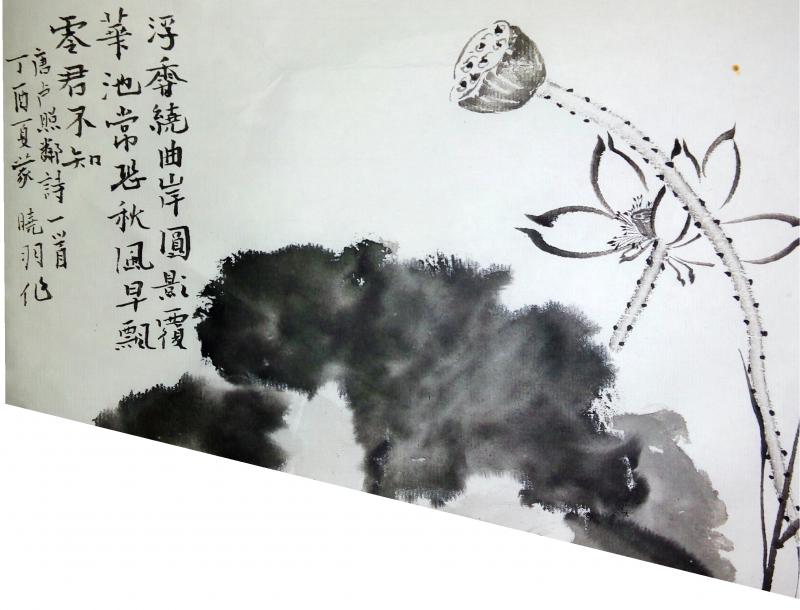 浮香繞曲岸圓影覆
華池常恐秋風早飄
零君不知
唐卢照鄰詩一首
丁酉夏蒙曉羽作